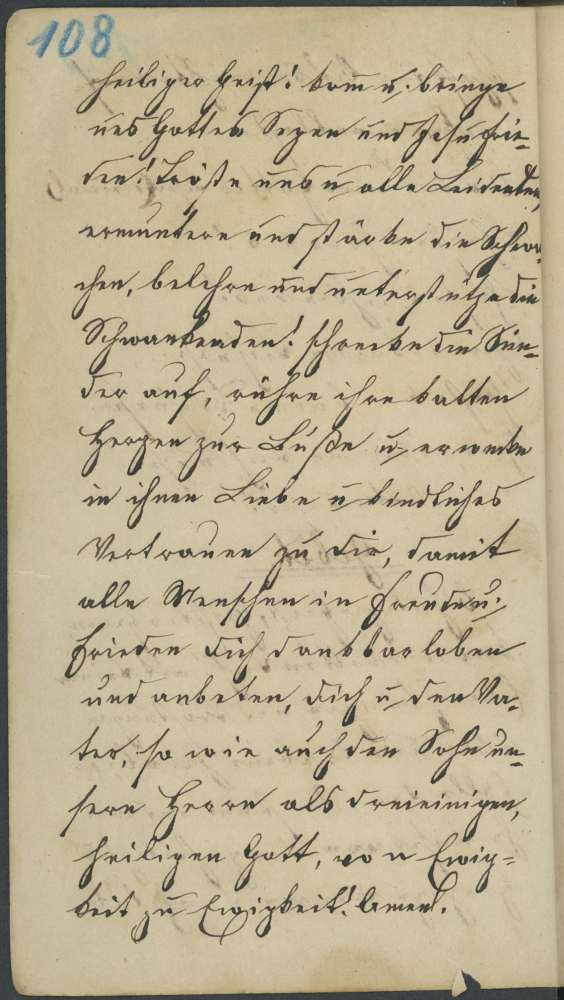 108
heiliger Geist! kom̄ u. bringe
uns Gottes Segen und Jesu Frie-
den! Tröste uns u. alle Leidenden,
ermuntere und stärke die Schwa-
chen, belehre und unterstütze die
Schwankenden! schrecke die Sün-
der auf, rühre ihre kalten
Herzen zur Buße u. erwecke
in ihnen Liebe u. kindliches
Vertrauen zu dir, damit
alle Menschen in Freude u.
Frieden dich dankbar loben
und anbeten, dich u. den Va-
ter, so wie auch den Sohn un-
sern Herrn als dreieinigen,
heiligen Gott, von Ewig-
keit zu Ewigkeit! Amen!.